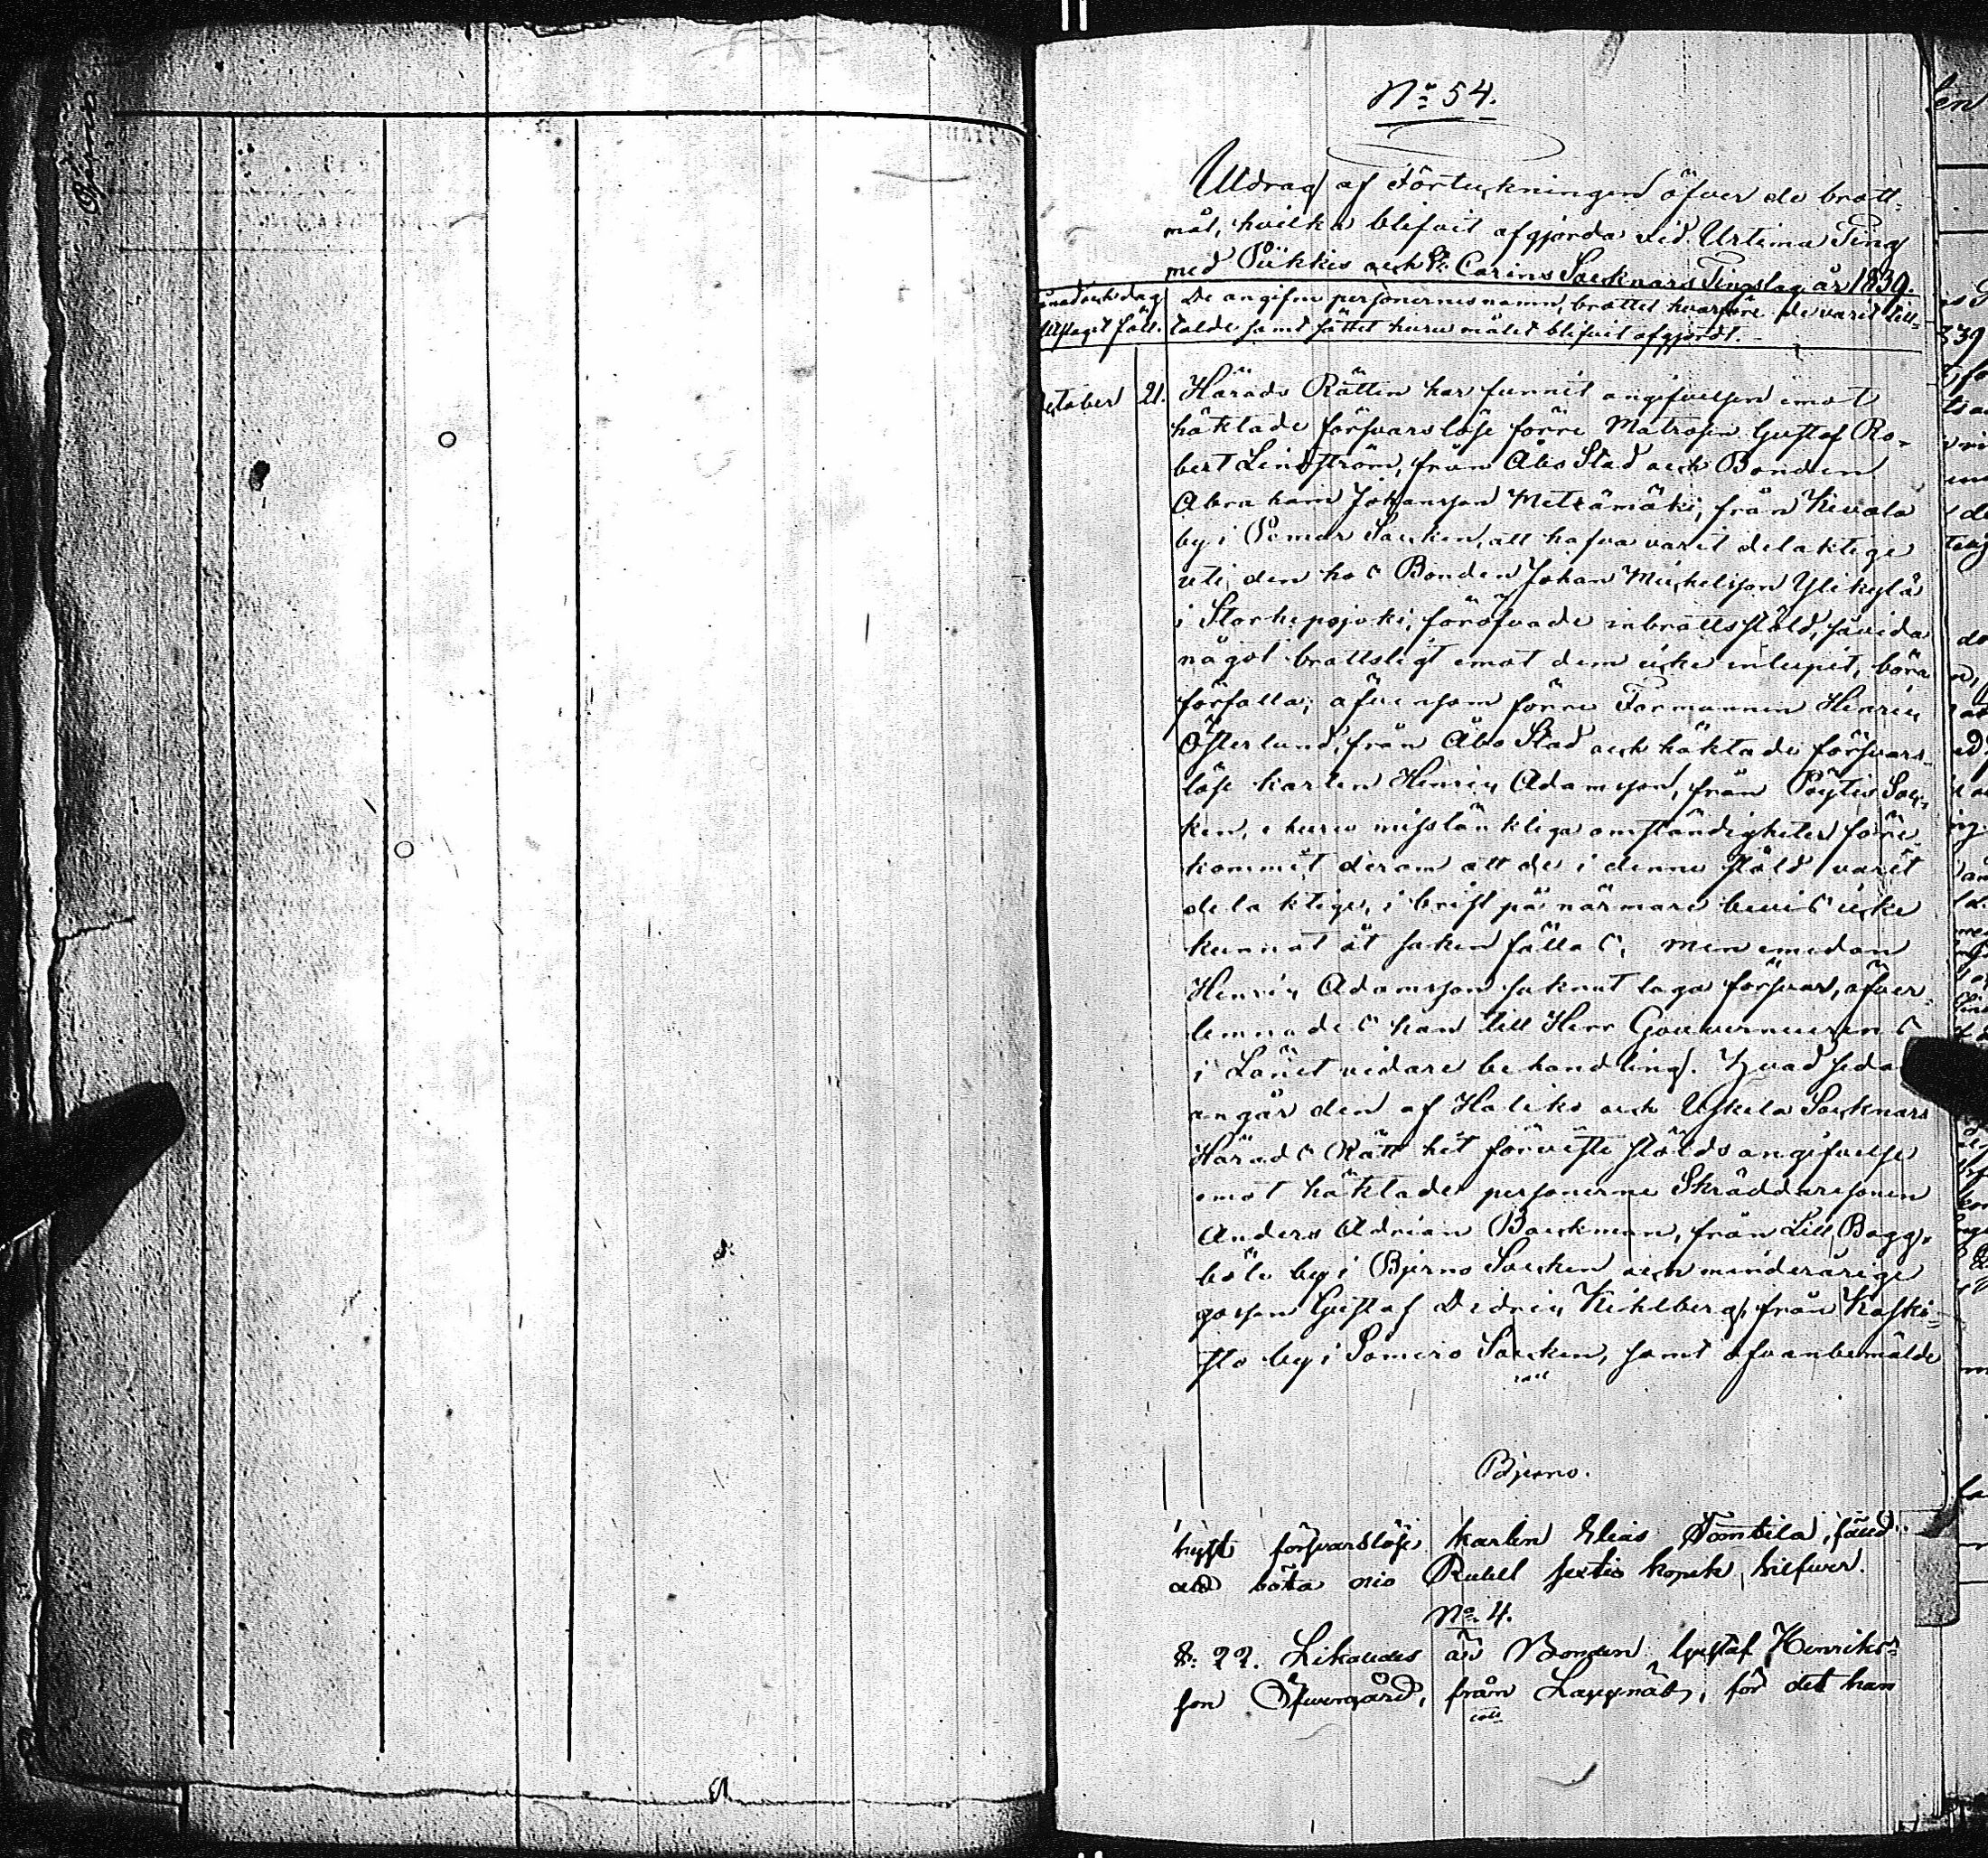 Bjerno
No 54.
Utdrag af Förteckningen öfver de brott-
mål, hvilka blifvit afgjorda vid Urtima Ting
med Pikkis och St Carins Socknars Tingslag år 1839.
månad och dag
utslaget föll.
De angifne personernes namn, brottet hvarföre de varit till-
talde samt sättet huru målet blifvit afgjordt.
October 21.
Härads Rätten har funnit angifvelsen emot
häktade försvarslöse förre Matrosen Gustaf Ro-
bert Lindström, från Åbo Stad och Bonden
Abraham Johansson Metsämäki, från Kivala
by i Pemar Socken, att hafva varit delaktige
uti den hos Bonden Johan Mickelsson Ylikylä
i Storhepojoki, föröfvade inbrottsstöld, såvida
något brottsligt emot dem icke inlupit, böra
förfalla; äfvensom förre Formannen Henric
Österlund, från Åbo Stad och häktade försvars-
löse karlen Henric Adamsson, från Pöytis Soc-
ken, ehuru misstänkliga omständigheter före-
kommit derom att de i denna stöld varit
delaktige, i brist på närmare bevis icke
kunnat åt saken fällas, men emedan
Henric Adamsson saknat laga försvar, öfver-
lemnades han till Herr Gouverneurens
i Länet vidare behandling. Hvad seda
angår den af Haliko och Uskela Socknars
Härads Rätt hit förviste stölds angifvelse
emot häktade personerne Skräddaresonen
Anders Adrian Backman, från Lill Bagg-
böle by i Bjerno Socken och minderårige
gossen Gustaf Didric Kihlberg, från Koski-
sto by i Somero Socken, samt ofvanbemälde
Bjerno.
hyst försvarslöse karlen Elias Tomtila, fälld
att böta nio Rubel sextio kopek silfver.
No 4.
8. 22. Likaledes är Bonden Gustaf Henriks-
son Öfvergård, från Lappnäs, för det han